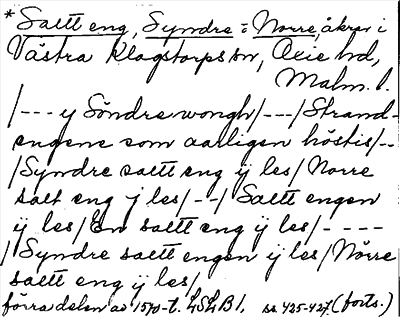 * Saltt eng, Syndre = Norre, åkrar i
Västra Klagstorps sn, Oxie hd,
Malm. l.
/--- y Söndre wongh/---/Strand-
engene som aarligen höstis/--
/Syndre saltt eng ij les/Norre
salt eng j les/--/Saltt engen
ij les/En saltt eng ij les/----
/Syndre saltt engen ij les/Nörre
saltt eng ij les/
förra delen av 1570-t. LSLB1, ss 425-427. (forts.)